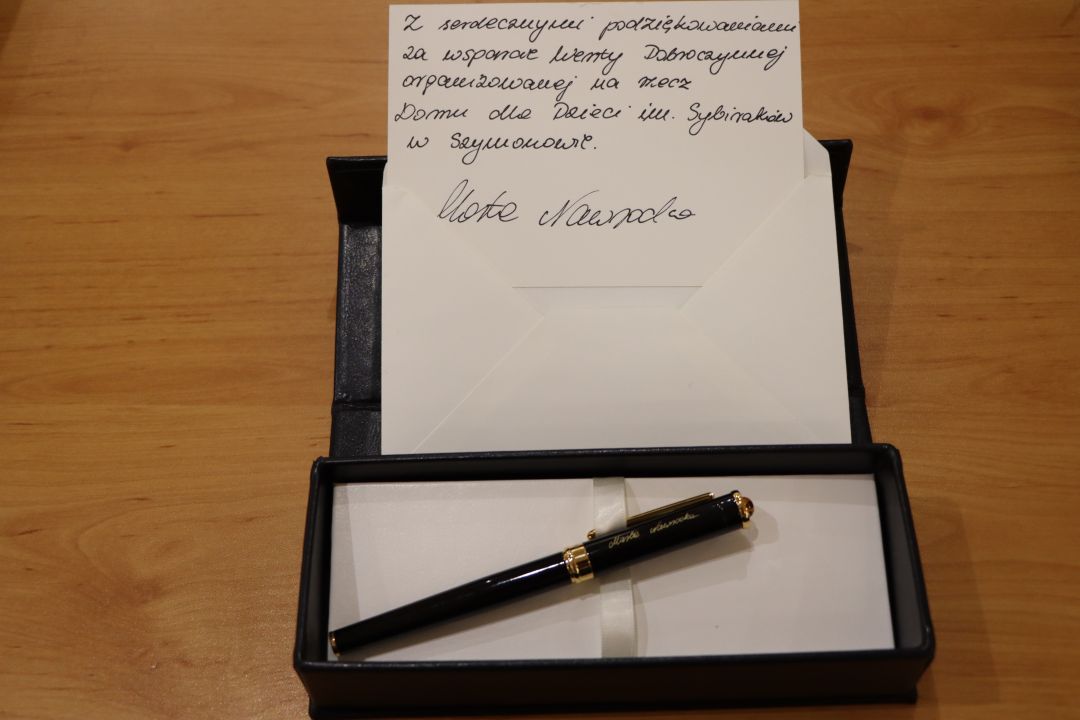 Z serdecznymi podziękowaniami
za wsparcie Wenty Dobroczynnej
organizowanej na rzecz
Domu dla Dzieci im. Sybiraków
w Szymonowie.
Marta Nawrocka
Marta Nawrocka